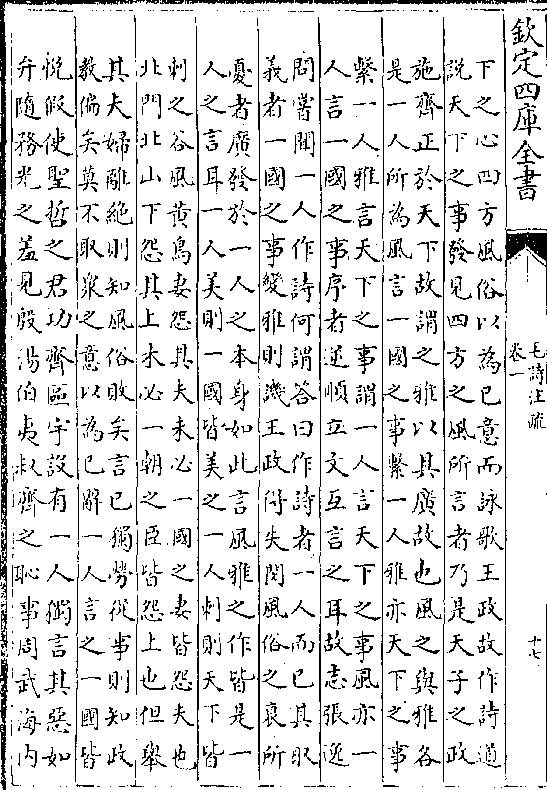 欽定四庫全書
毛詩注疏
卷一
十七
下之心四方風俗以為已意而詠歌王政故作詩道
說天下之事發見四方之風所言者乃是天子之政
施齊正於天下故謂之雅以其廣故也風之與雅各
是一人所為風言一國之事繫一人雅亦天下之事
繫一人雅言天下之事謂一人言天下之事風亦一
人言一國之事序者逆順立文互言之耳故志張逸
問嘗聞一人作詩何謂答曰作詩者一人而已其取
義者一國之事變雅則譏王政得失閔風俗之衰所
憂者廣發於一人之本身如此言風雅之作皆是一
人之言耳一人美則一國皆美之一人刺則天下皆
刺之谷風黃鳥妻怨其夫未必一國之妻皆怨夫也
北門北山下怨其上未必一朝之臣皆怨上也但舉
其夫婦離絕則知風俗敗矣言已獨勞從事則知政
教偏矣莫不取衆之意以為已辭一人言之一國皆
悅假使聖哲之君功齊區宇設有一人獨言其惡如
弁隨務光之羞見殷湯伯夷叔齊之恥事周武海内